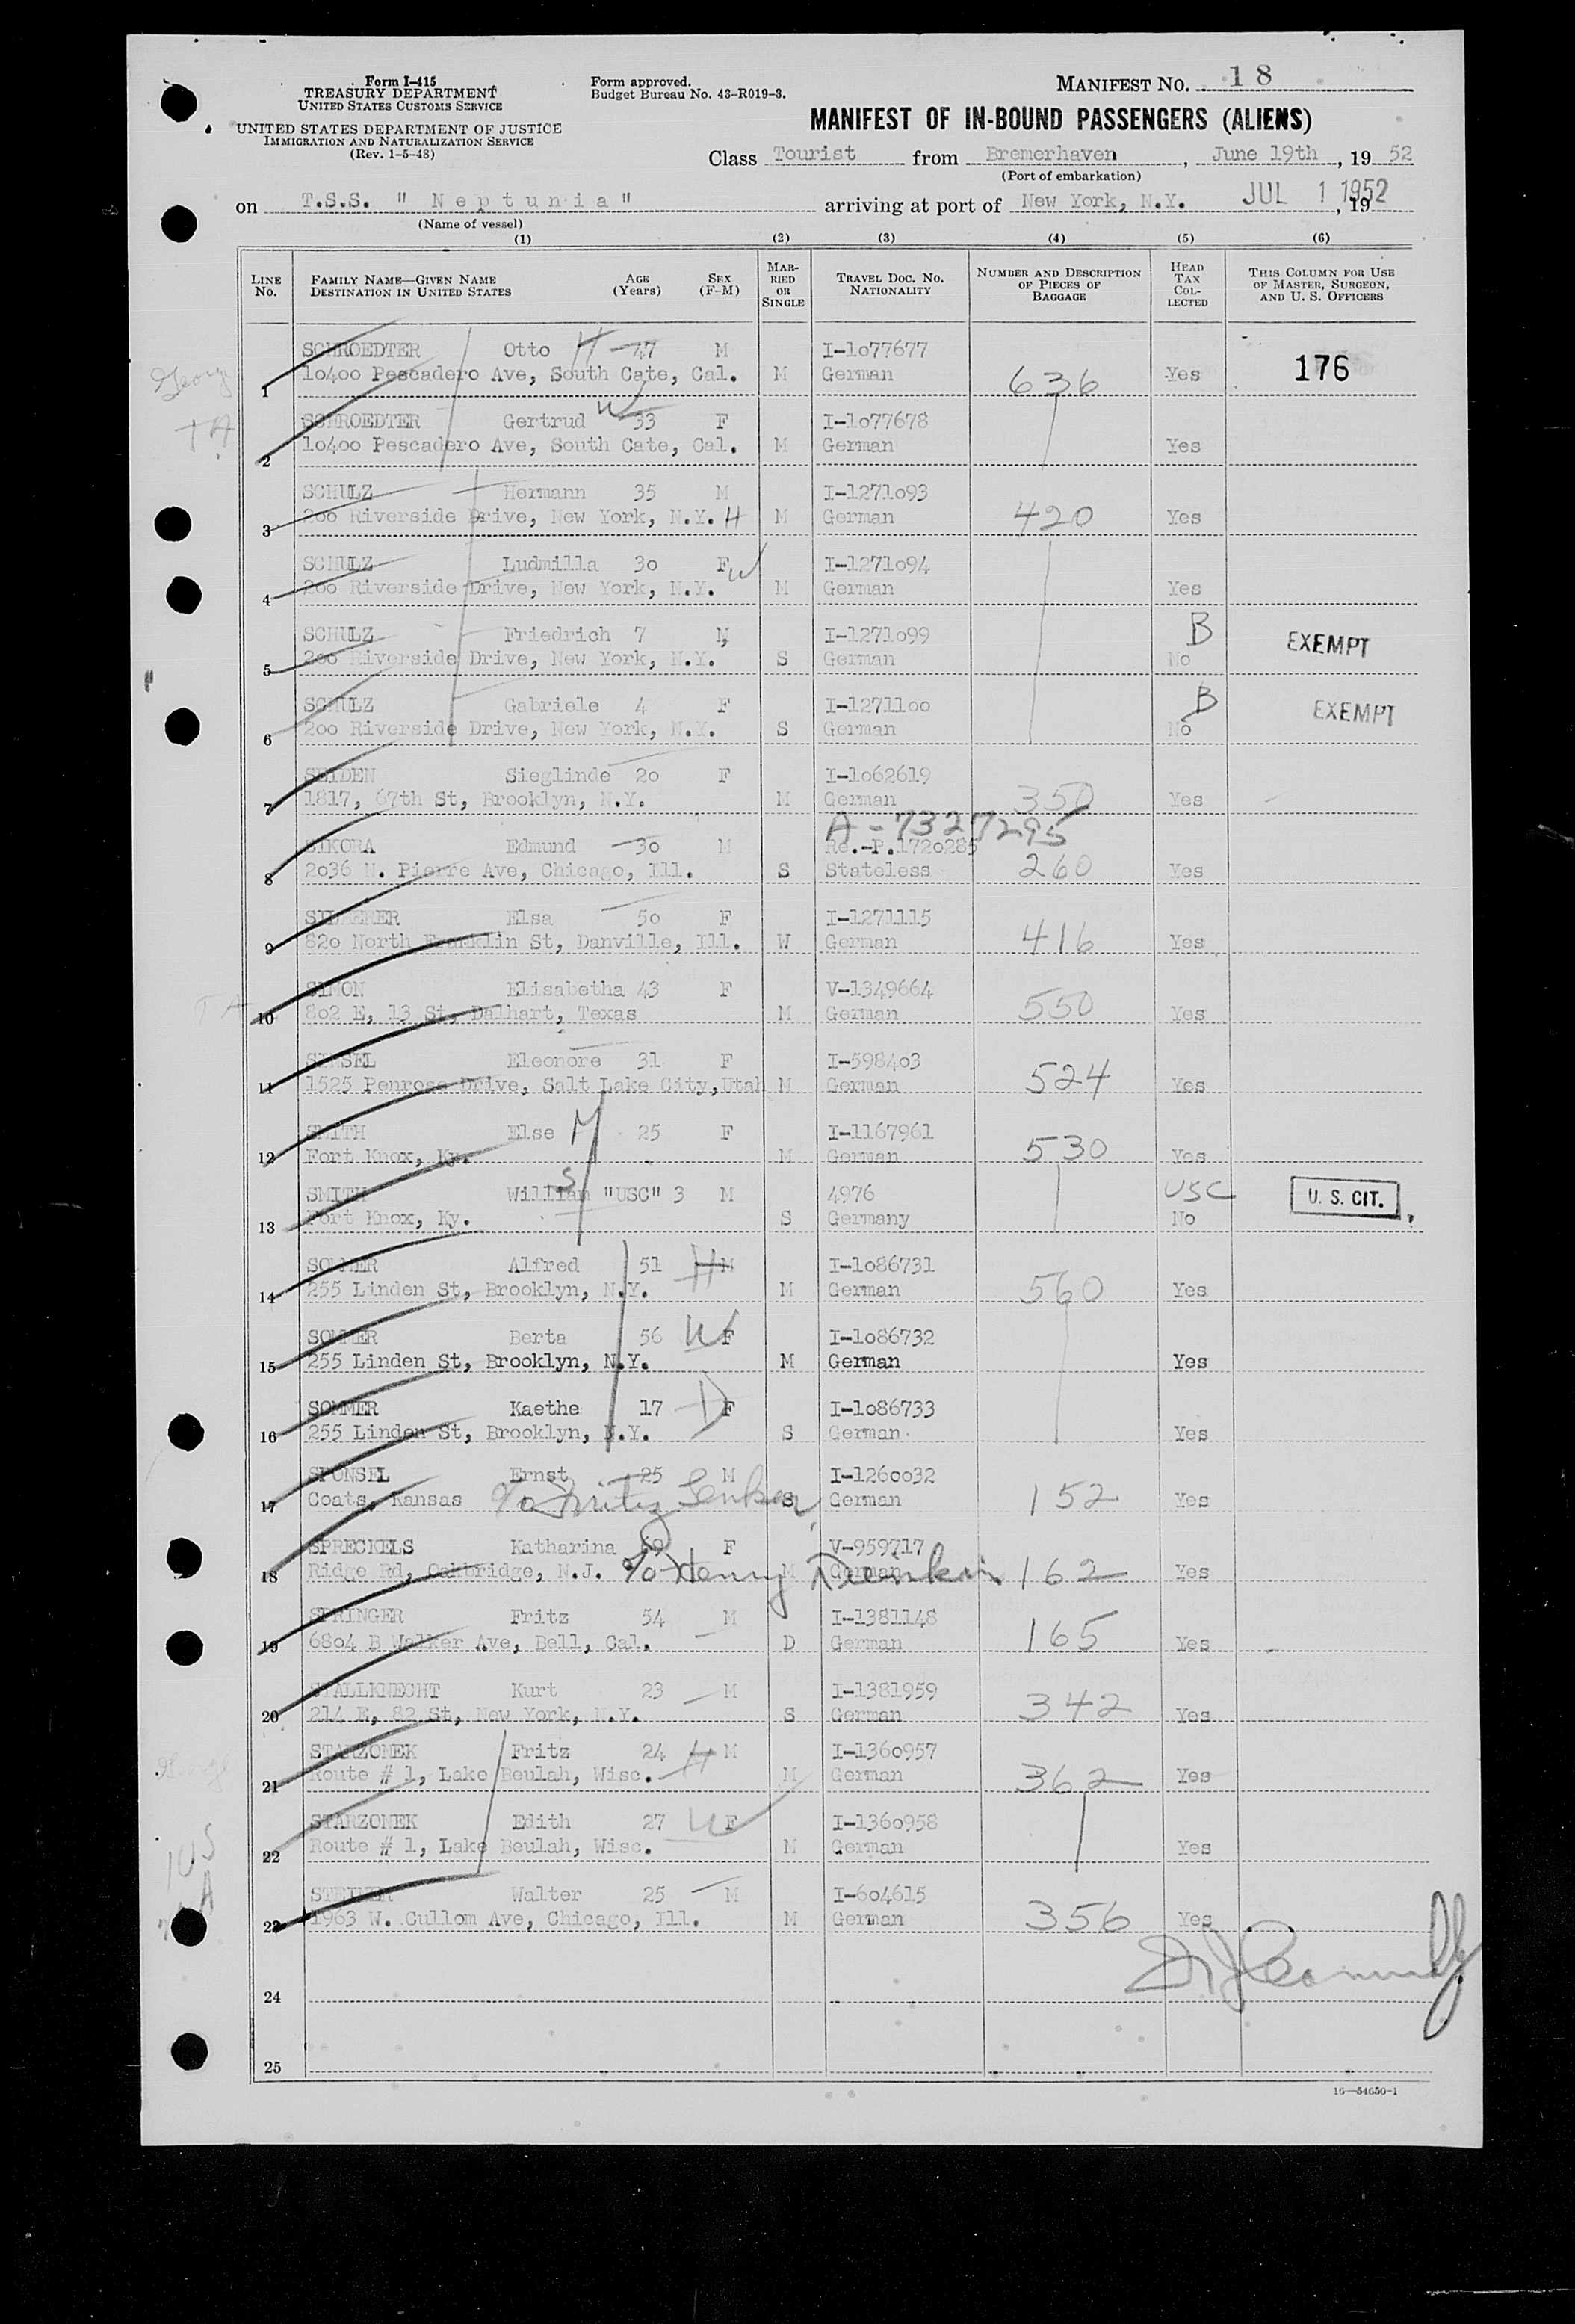 Form I-415
TREASURY DEPARTMENT
UNITED STATES CUSTOMS SERVICE
UNITED STATES DEPARTMENT OF JUSTICE
IMMIGRATION AND NATURALIZATION SERVICE
(Rev. 1-5-48)
Form approved.
Budget Bureau No. 43-R019-3.
MANIFEST NO. 18
MANIFEST OF IN-BOUND PASSENGERS (ALIENS)
Class Tourist from Bremerhaven, June 19th, 19 52
(Port of embarkation)
on T.S.S. "Neptunia" arriving at port of New York, N.Y. JUL 1 1952, 19
(Name of vessel)
(1) (2) (3) (4) (5) (6)
LINE NO. FAMILY NAME—GIVEN NAME DESTINATION IN UNITED STATES AGE (Years) SEX (F-M) MARRIED OR SINGLE TRAVEL DOC. NO. NATIONALITY NUMBER AND DESCRIPTION OF PIECES OF BAGGAGE HEAD TAX COLLECTED THIS COLUMN FOR USE OF MASTER, SURGEON, AND U. S. OFFICERS
SCHROEDTER Otto H 47 M I-1o77677
1 1o4oo Pescadero Ave, South Gate, Cal. M German 636 Yes 176
George
TA
SCHROEDTER Gertrud W 33 F I-1o77678
2 1o4oo Pescadero Ave, South Gate, Cal. M German Yes
SCHULZ Hermann 35 M I-1271o93
3 2oo Riverside Drive, New York, N.Y. H M German 420 Yes
SCHULZ Ludmilla 3o F W I-1271o94
4 2oo Riverside Drive, New York, N.Y. M German Yes
SCHULZ Friedrich 7 M I-1271o99 B EXEMPT
5 2oo Riverside Drive, New York, N.Y. S German No
SCHULZ Gabriele 4 F I-12711oo B EXEMPT
6 2oo Riverside Drive, New York, N.Y. S German No
SEIDEN Sieglinde 2o F I-1o62619
7 1817, 67th St, Brooklyn, N.Y. M German 350 Yes
A-7327295
SIKORA Edmund 3o M Re.-P.172o285
8 2o36 N. Pierre Ave, Chicago, Ill. S Stateless 260 Yes
Elsa 5o F I-1271115
9 82o North Franklin St, Danville, Ill. W German 416 Yes
SIMON Elisabetha 43 F V-1349664
TA 10 8o2 E, 13 St, Dalhart, Texas M German 550 Yes
Eleonore 31 F I-5984o3
11 1525 Penrose Drive, Salt Lake City, Utah M German 524 Yes
SMITH Else M 25 F I-1167961
12 Fort Knox, Ky. M German 530 Yes
SMITH William S "USC" 3 M 4976 USC U. S. CIT.
13 Fort Knox, Ky. S Germany No
SOMMER Alfred 51 H M I-1o86731
14 255 Linden St, Brooklyn, N.Y. M German 560 Yes
SOMMER Berta 56 W F I-1o86732
15 255 Linden St, Brooklyn, N.Y. M German Yes
SOMMER Kaethe 17 D F I-1o86733
16 255 Linden St, Brooklyn, N.Y. S German Yes
SPONSEL Ernst 25 M I-126oo32
17 Coats, Kansas c/o Fritz S German 152 Yes
SPRECKELS Katharina F V-959717
18 Ridge Rd, Oakbridge, N.J. c/o Henry M German 162 Yes
SPRINGER Fritz 54 M I-1381148
19 68o4 B Walker Ave, Bell, Cal. D German 165 Yes
STALLKNECHT Kurt 23 M I-1381959
20 214 E, 82 St, New York, N.Y. S German 342 Yes
STARZONEK Fritz 24 H M I-136o957
21 Route # 1, Lake Beulah, Wisc. M German 362 Yes
STARZONEK Edith 27 W F I-136o958
22 Route # 1, Lake Beulah, Wisc. M German Yes
STEINER Walter 25 M I-6o4615
23 1963 W. Cullom Ave, Chicago, Ill. M German 356 Yes
24
25
16—54650-1